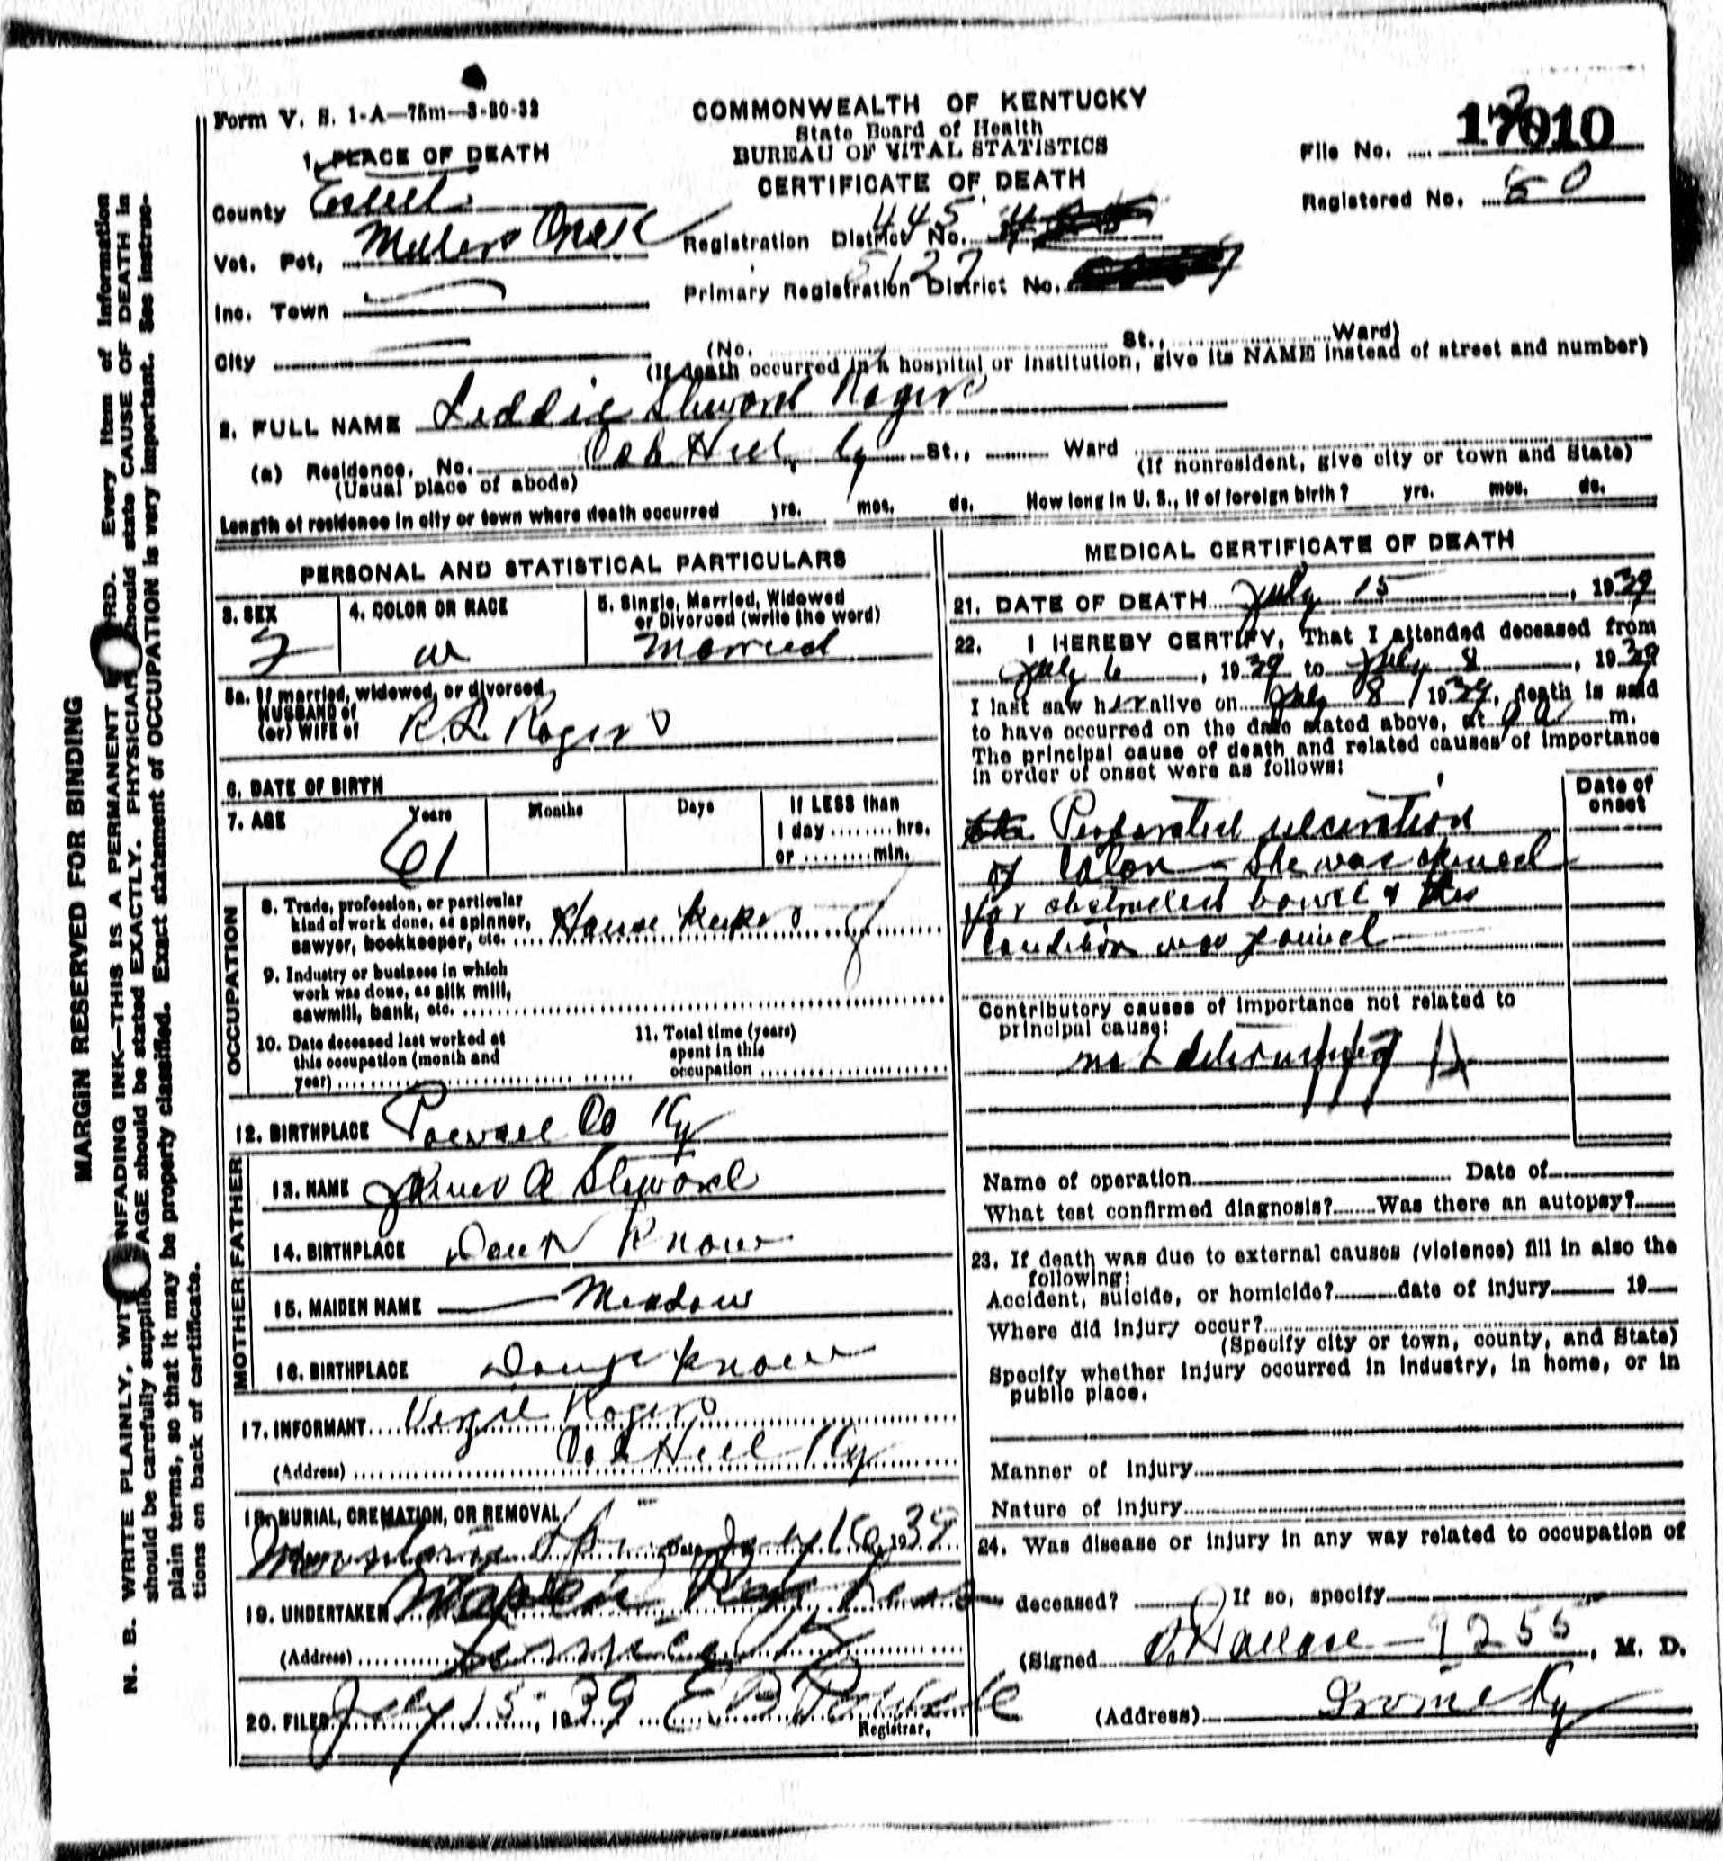 Form V. S. 1-A—75m—3-30-32
COMMONWEALTH OF KENTUCKY
State Board of Health
BUREAU OF VITAL STATISTICS
CERTIFICATE OF DEATH
File No. 17010
Registered No. 50
1. PLACE OF DEATH
County Estill
Vot. Pct, Millers Creek
Registration District No. 445
Inc. Town
Primary Registration District No. 5127
City
(No. St., Ward)
(If death occurred in a hospital or institution, give its NAME instead of street and number)
2. FULL NAME Liddie Steward Rogers
(a) Residence. No. Hill, Ky St., Ward (If nonresident, give city or town and State)
(Usual place of abode)
Length of residence in city or town where death occurred yrs. mos. ds. How long in U. S., if of foreign birth? yrs. mos. ds.
PERSONAL AND STATISTICAL PARTICULARS
3. SEX F
4. COLOR OR RACE W
5. Single, Married, Widowed
or Divorced (write the word)
Married
5a. If married, widowed, or divorced
HUSBAND of
(or) WIFE of R. L. Rogers
6. DATE OF BIRTH
7. AGE Years Months Days If LESS than
61 1 day ........ hrs.
or ........ min.
OCCUPATION
8. Trade, profession, or particular
kind of work done, as spinner,
sawyer, bookkeeper, etc. House Keeper
9. Industry or business in which
work was done, as silk mill,
sawmill, bank, etc.
10. Date deceased last worked at
this occupation (month and
year)
11. Total time (years)
spent in this
occupation
12. BIRTHPLACE Powell Co Ky
FATHER
13. NAME James A Steward
14. BIRTHPLACE Don't Know
MOTHER
15. MAIDEN NAME Meadows
16. BIRTHPLACE Don't Know
17. INFORMANT Virgil Rogers
(Address) Hill Ky
18. BURIAL, CREMATION, OR REMOVAL
Date July 1939
19. UNDERTAKER
(Address)
20. FILED July 15, 1939 E B
Registrar.
MEDICAL CERTIFICATE OF DEATH
21. DATE OF DEATH July 15, 1939
22. I HEREBY CERTIFY, That I attended deceased from
July 6, 1939 to July 8, 1939
I last saw her alive on July 8, 1939, death is said
to have occurred on the date stated above, at m.
The principal cause of death and related causes of importance
in order of onset were as follows:
Date of
onset
Perforated ulceration
of Colon – She was opened
for obstructed bowel & this
condition was found
Contributory causes of importance not related to
principal cause:
not
Name of operation Date of
What test confirmed diagnosis? Was there an autopsy?
23. If death was due to external causes (violence) fill in also the
following:
Accident, suicide, or homicide? date of injury 19
Where did injury occur?
(Specify city or town, county, and State)
Specify whether injury occurred in industry, in home, or in
public place.
Manner of injury
Nature of injury
24. Was disease or injury in any way related to occupation of
deceased? If so, specify
(Signed Wallace – 9255, M. D.
(Address) Irvine Ky
MARGIN RESERVED FOR BINDING
N. B. WRITE PLAINLY, WITH UNFADING INK—THIS IS A PERMANENT RECORD. Every item of information
should be carefully supplied. AGE should be stated EXACTLY. PHYSICIANS should state CAUSE OF DEATH in
plain terms, so that it may be properly classified. Exact statement of OCCUPATION is very important. See instruc-
tions on back of certificate.